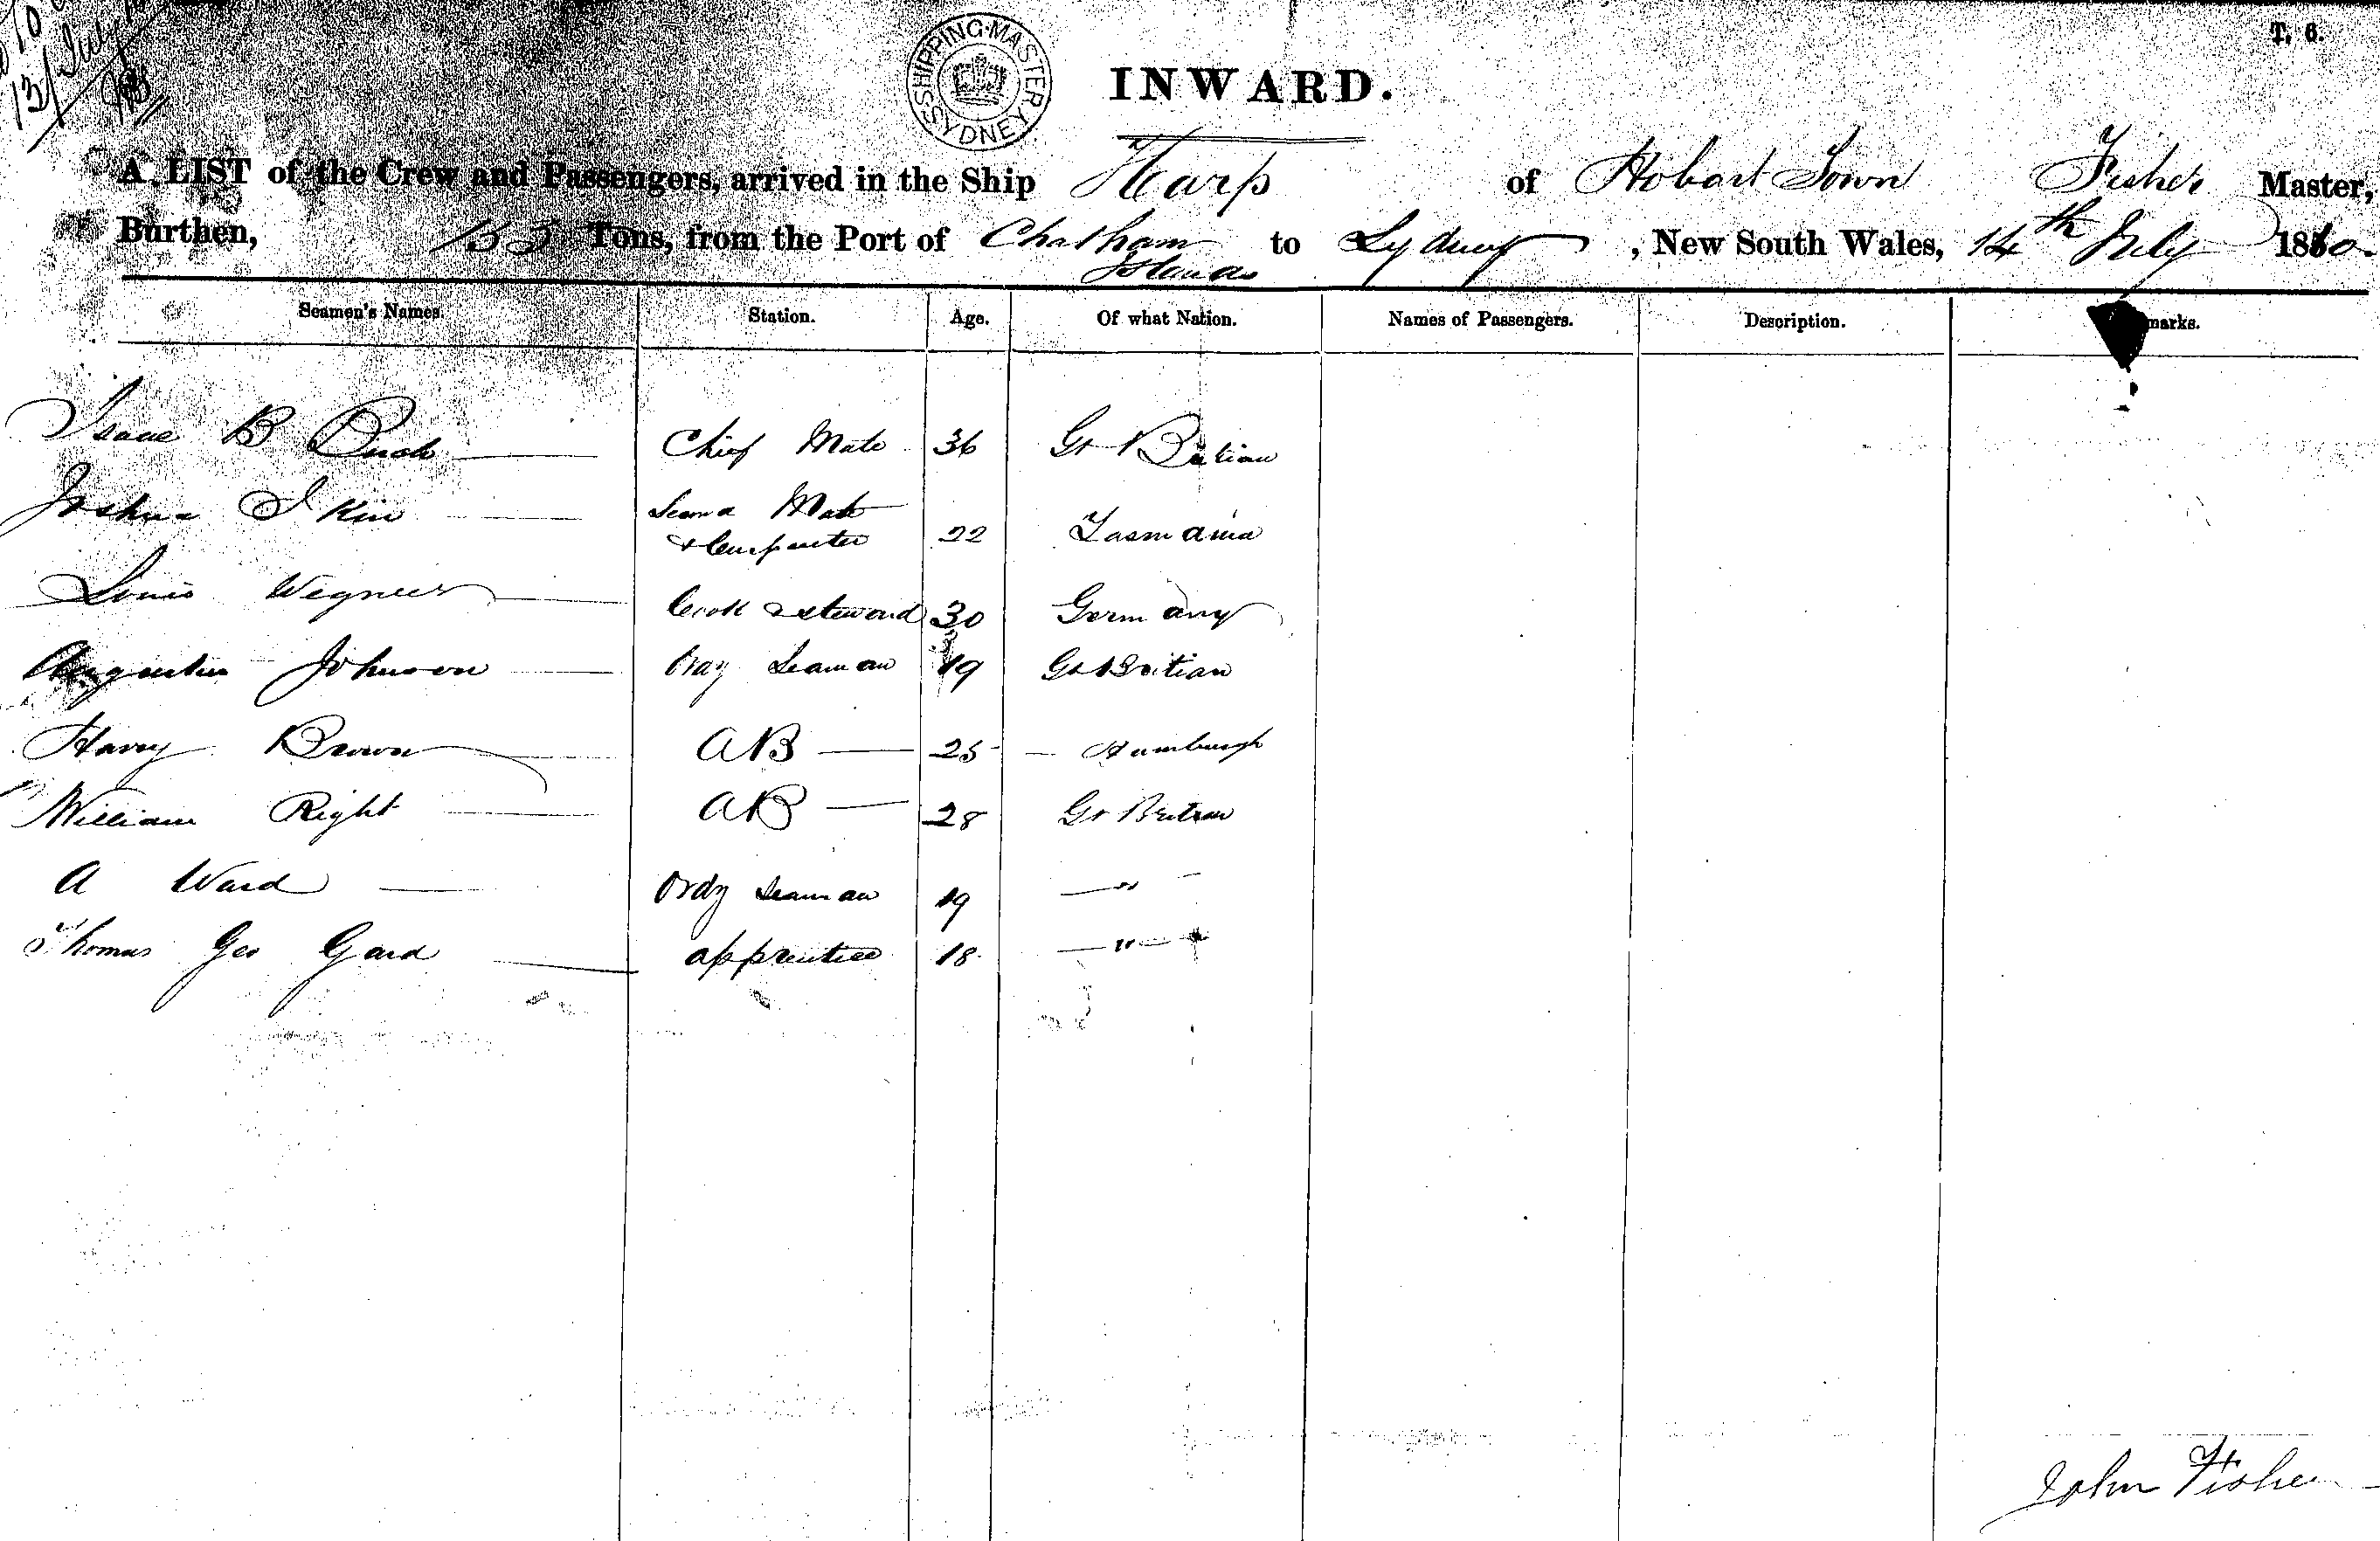 13/July
SHIPPING·MASTER SYDNEY
T. 6.
INWARD.
A LIST of the Crew and Passengers, arrived in the Ship Harp of Hobart Town Fisher Master,
Burthen, Tons, from the Port of Chatham Islands to Sydney, New South Wales, 14th July 1860.
Seamen's Names. Station. Age. Of what Nation. Names of Passengers. Description. marks.
Isaac B Chief Mate 36 Gt Britian
Joshua Second Mate & Carpenter 22 Tasmania
Louis Wegner Cook & steward 30 Germany
Augustus Johnson Ordy Seaman 19 Gt Britian
Harry Brown AB 25 Hamburgh
William Right AB 28 Gt Britian
A Ward Ordy Seaman 19 — " —
Thomas Geo Gard apprentice 18 — " —
John Fisher